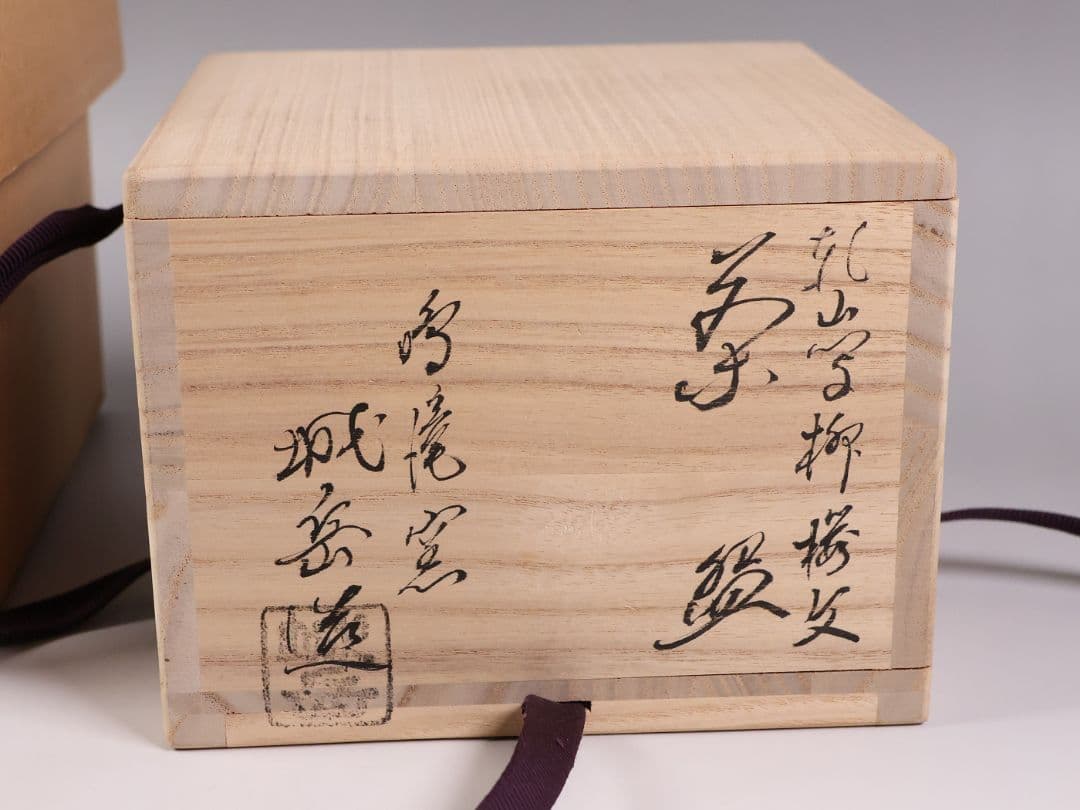 乾山写柳桜文
菓盌
鳴滝窯
城岳造